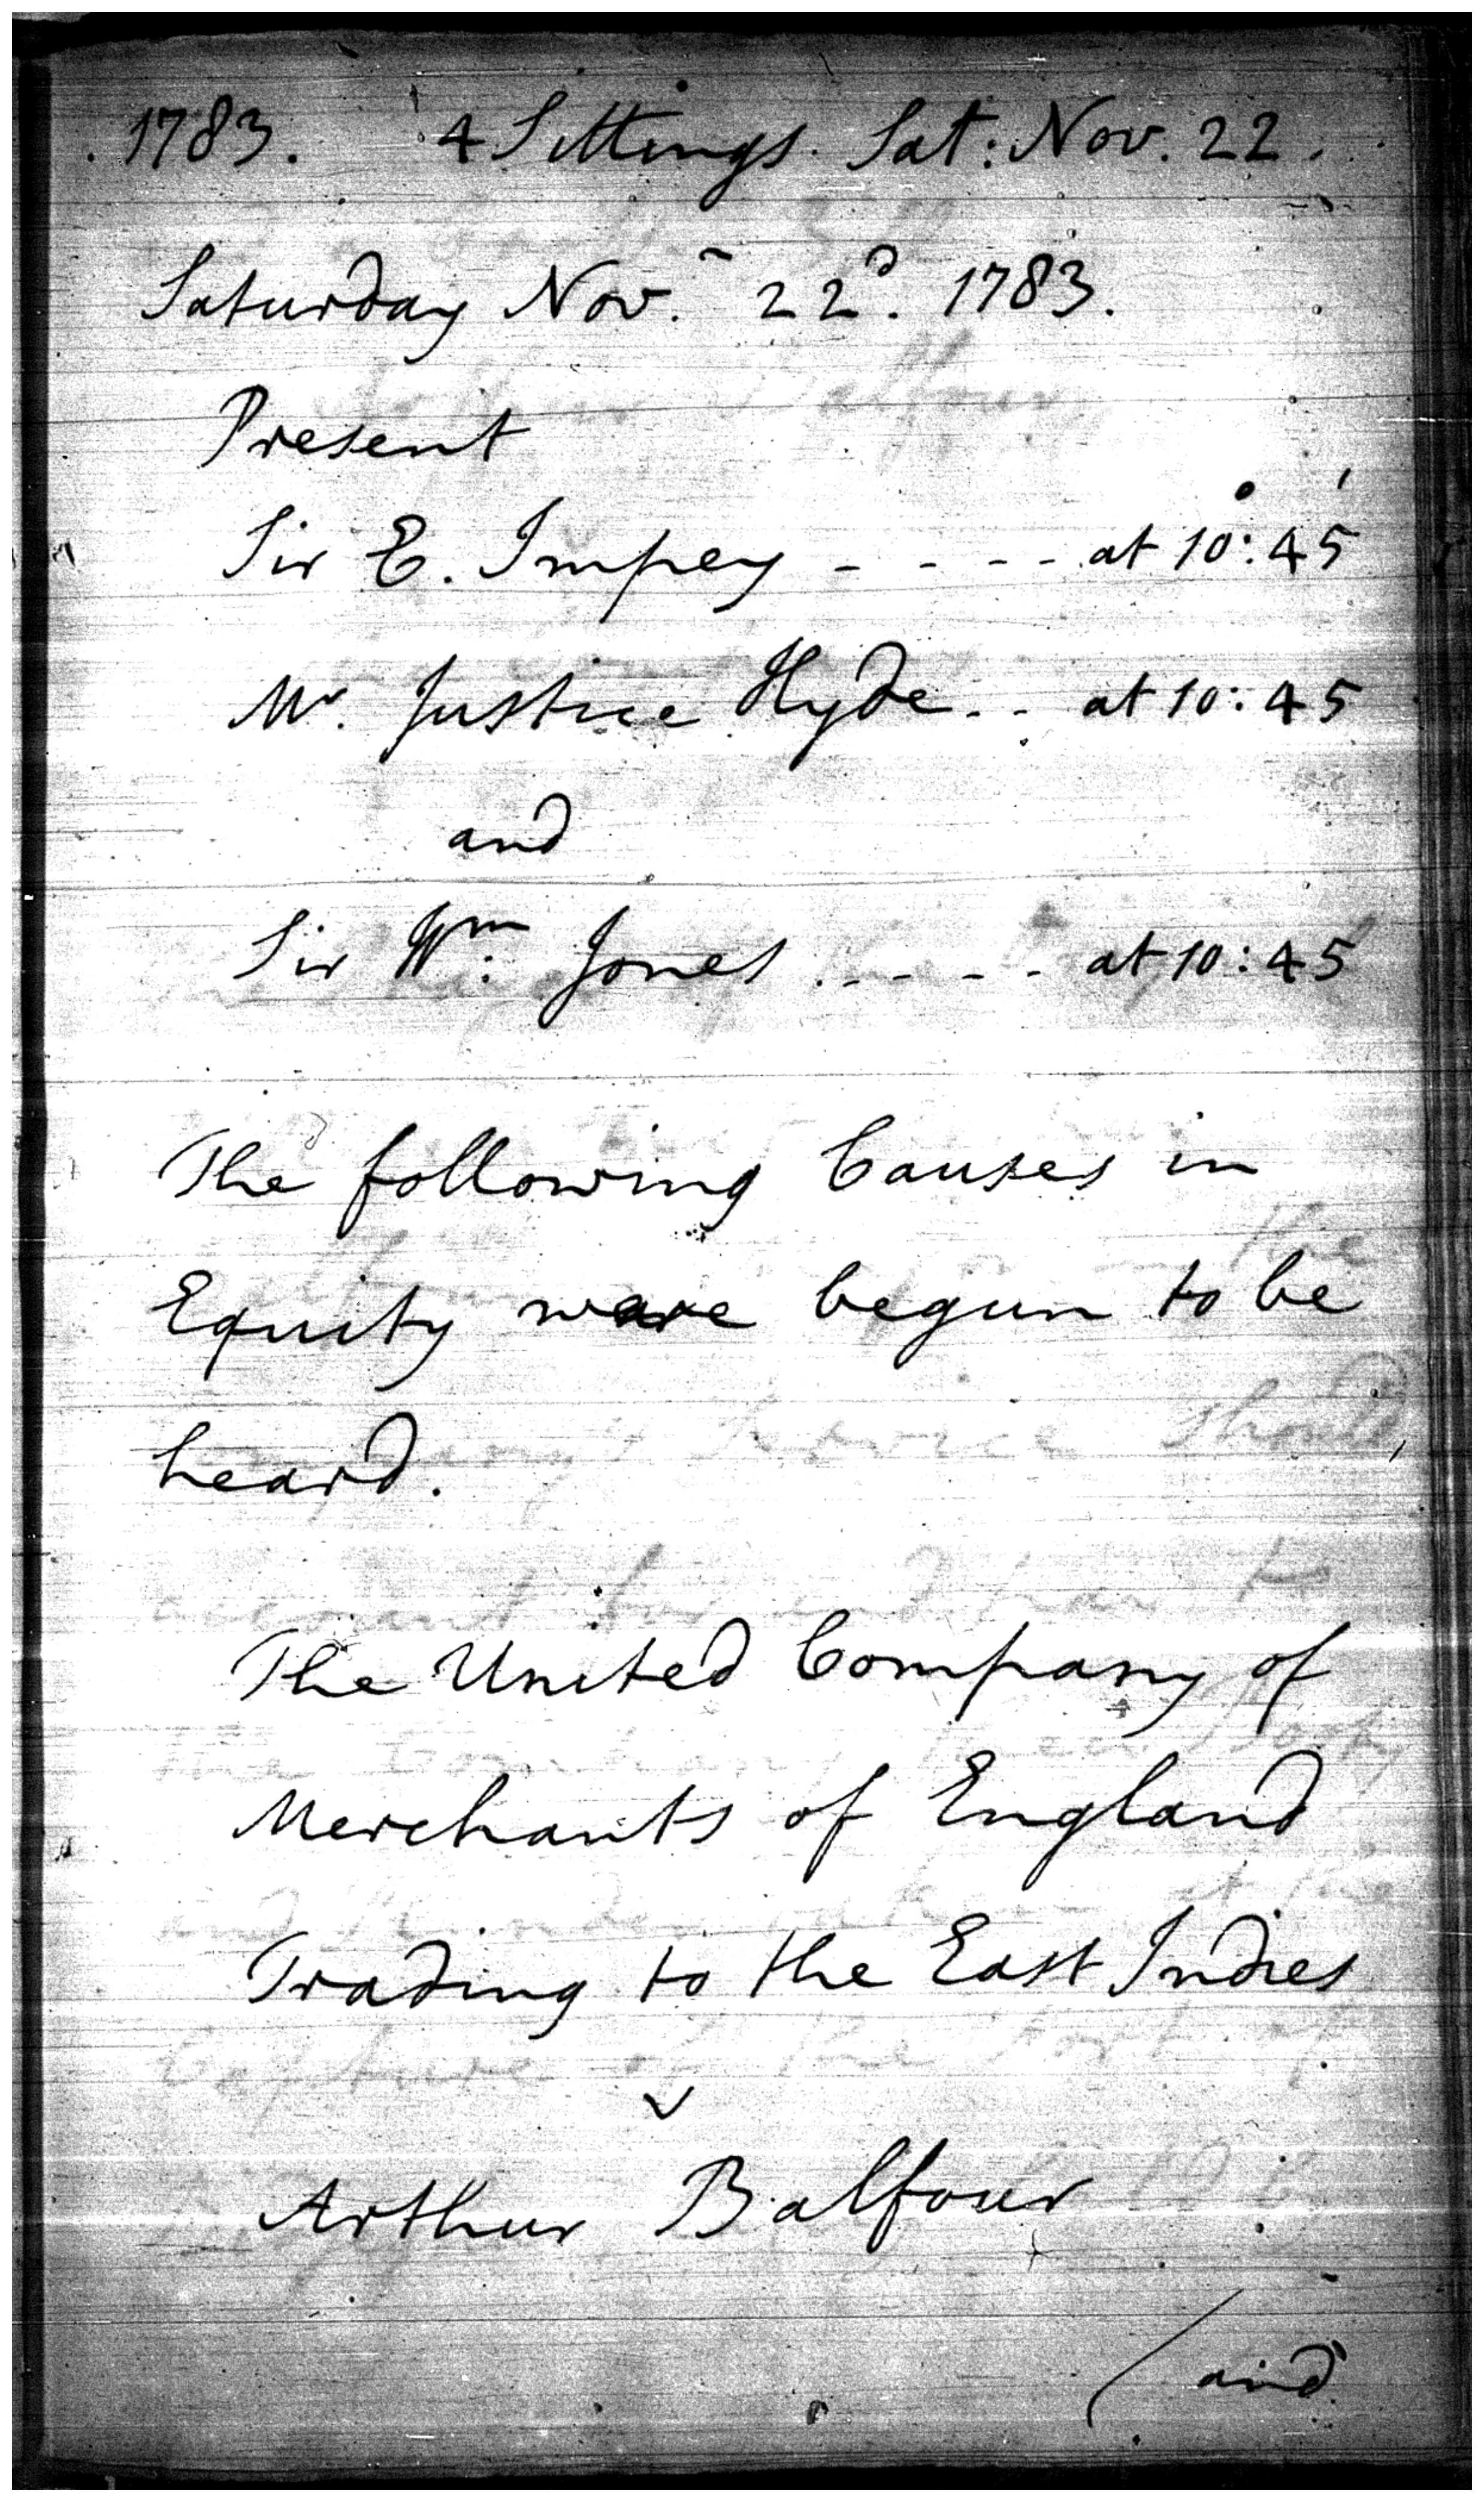 1783. 4 Sittings. Sat: Nov. 22.
Saturday Nov.r 22d. 1783.
Present
Sir E. Impey - - - - at 10°: 45'
Mr. Justice Hyde - - at 10: 45
and
Sir Wm: Jones - - - - at 10: 45
The following Causes in
Equity were begun to be
heard.
The United Company of
Merchants of England
Trading to the East Indies
v
Arthur Balfour
/ and